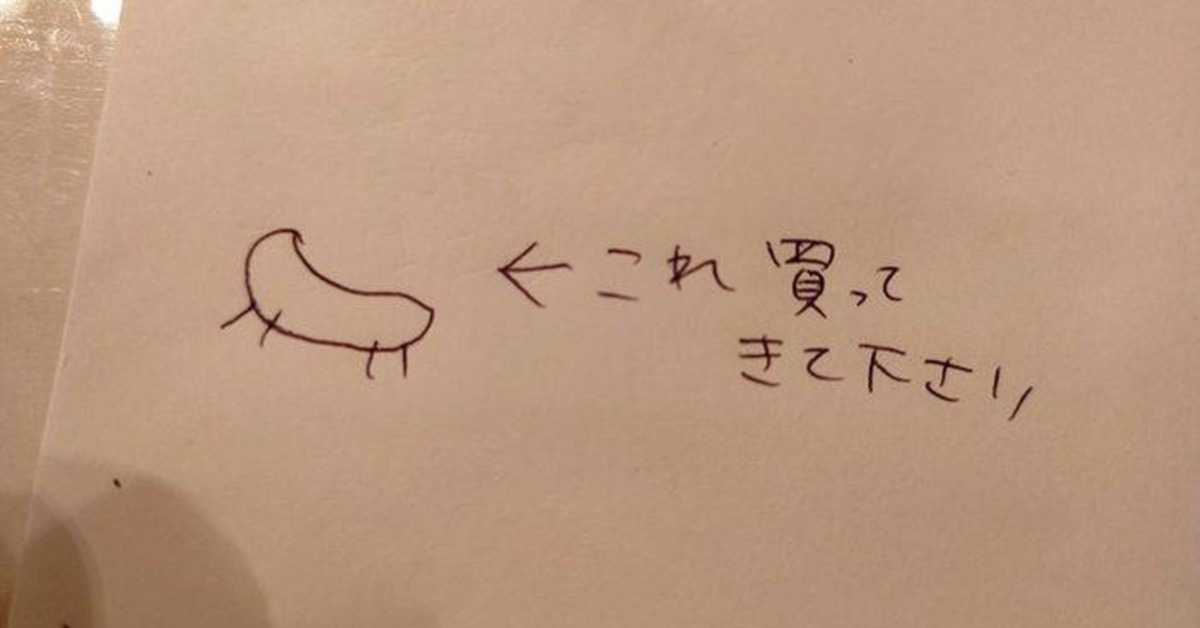 ←これ買って
きて下さい